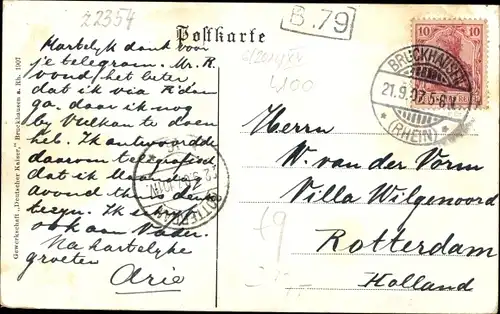 22354
Postkarte
B.79
10 10
BRUCKHAUSEN
21.9.07.5-6N.
* (RHEIN) *
4100
Hartelyk dank voor
je telegram. Mr. R.
vond het beter,
dat ik via A'dam
ga. daar ik nog
by Vulkan te doen
heb. Ik antwoordde
daarom telegrafisch
dat ik Maandag
avond thuis denk
te zyn. Ik
ook aan Vader.
Na hartelyke
groeten
Arie
ROTTERDAM
Herrn
W. van der Vorm
Villa Wilgenoord
Rotterdam
Holland
f9
Gewerkschaft „Deutscher Kaiser," Bruckhausen a. Rh. 1907